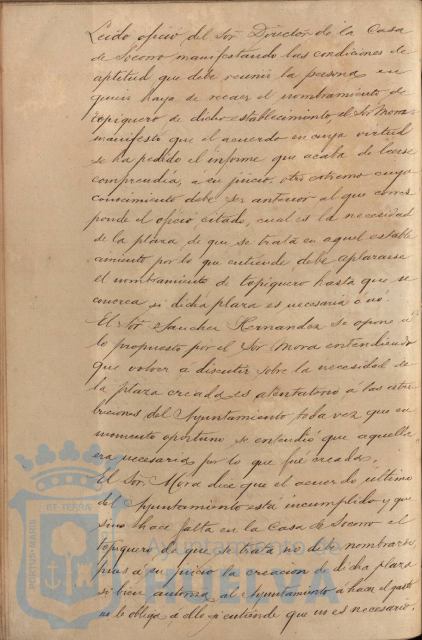 Leido oficio del Sor Director de la Casa
de Socorro manifestando las condiciones de
aptitud que debe reunir la persona en
quien haya de recaer el nombramiento de
topiquero de dicho establecimiento, el Sor Mora
manifestó que el acuerdo en cuya virtud
se ha pedido el informe que acaba de leerse
comprendia, á su juicio, otro extremo cuyo
conocimiento debe ser anterior al que corres
ponde el oficio citado, cual es la necesidad
de la plaza de que se trata en aquel estable
cimiento por lo que entiende debe aplazarse
el nombramiento de topiquero hasta que se
conozca si dicha plaza es necesaria ó nó.
El Sor Sanchez Hernandez se opone á
lo propuesto por el Sor Mora entendiendo
que volver a discutir sobre la necesidad de
la plaza creada es atentatorio á las atri
buciones del Ayuntamiento, toda vez que en
momento oportuno se entendió que aquella
era necesaria por lo que fué creada.
El Sor Mora dice que el acuerdo último
del Ayuntamiento está incumplido y que
sino hace falta en la Casa de Socorro el
topiquero de que se trata no debe nombrarse,
pues á su juicio la creacion de dicha plaza
si bien autoriza al Ayuntamiento á hacer el gasto
no le obliga a ello si entiende que no es necesario.
PORTUS MARIS
ET TERRÆ
Ayuntamiento de
HUELVA